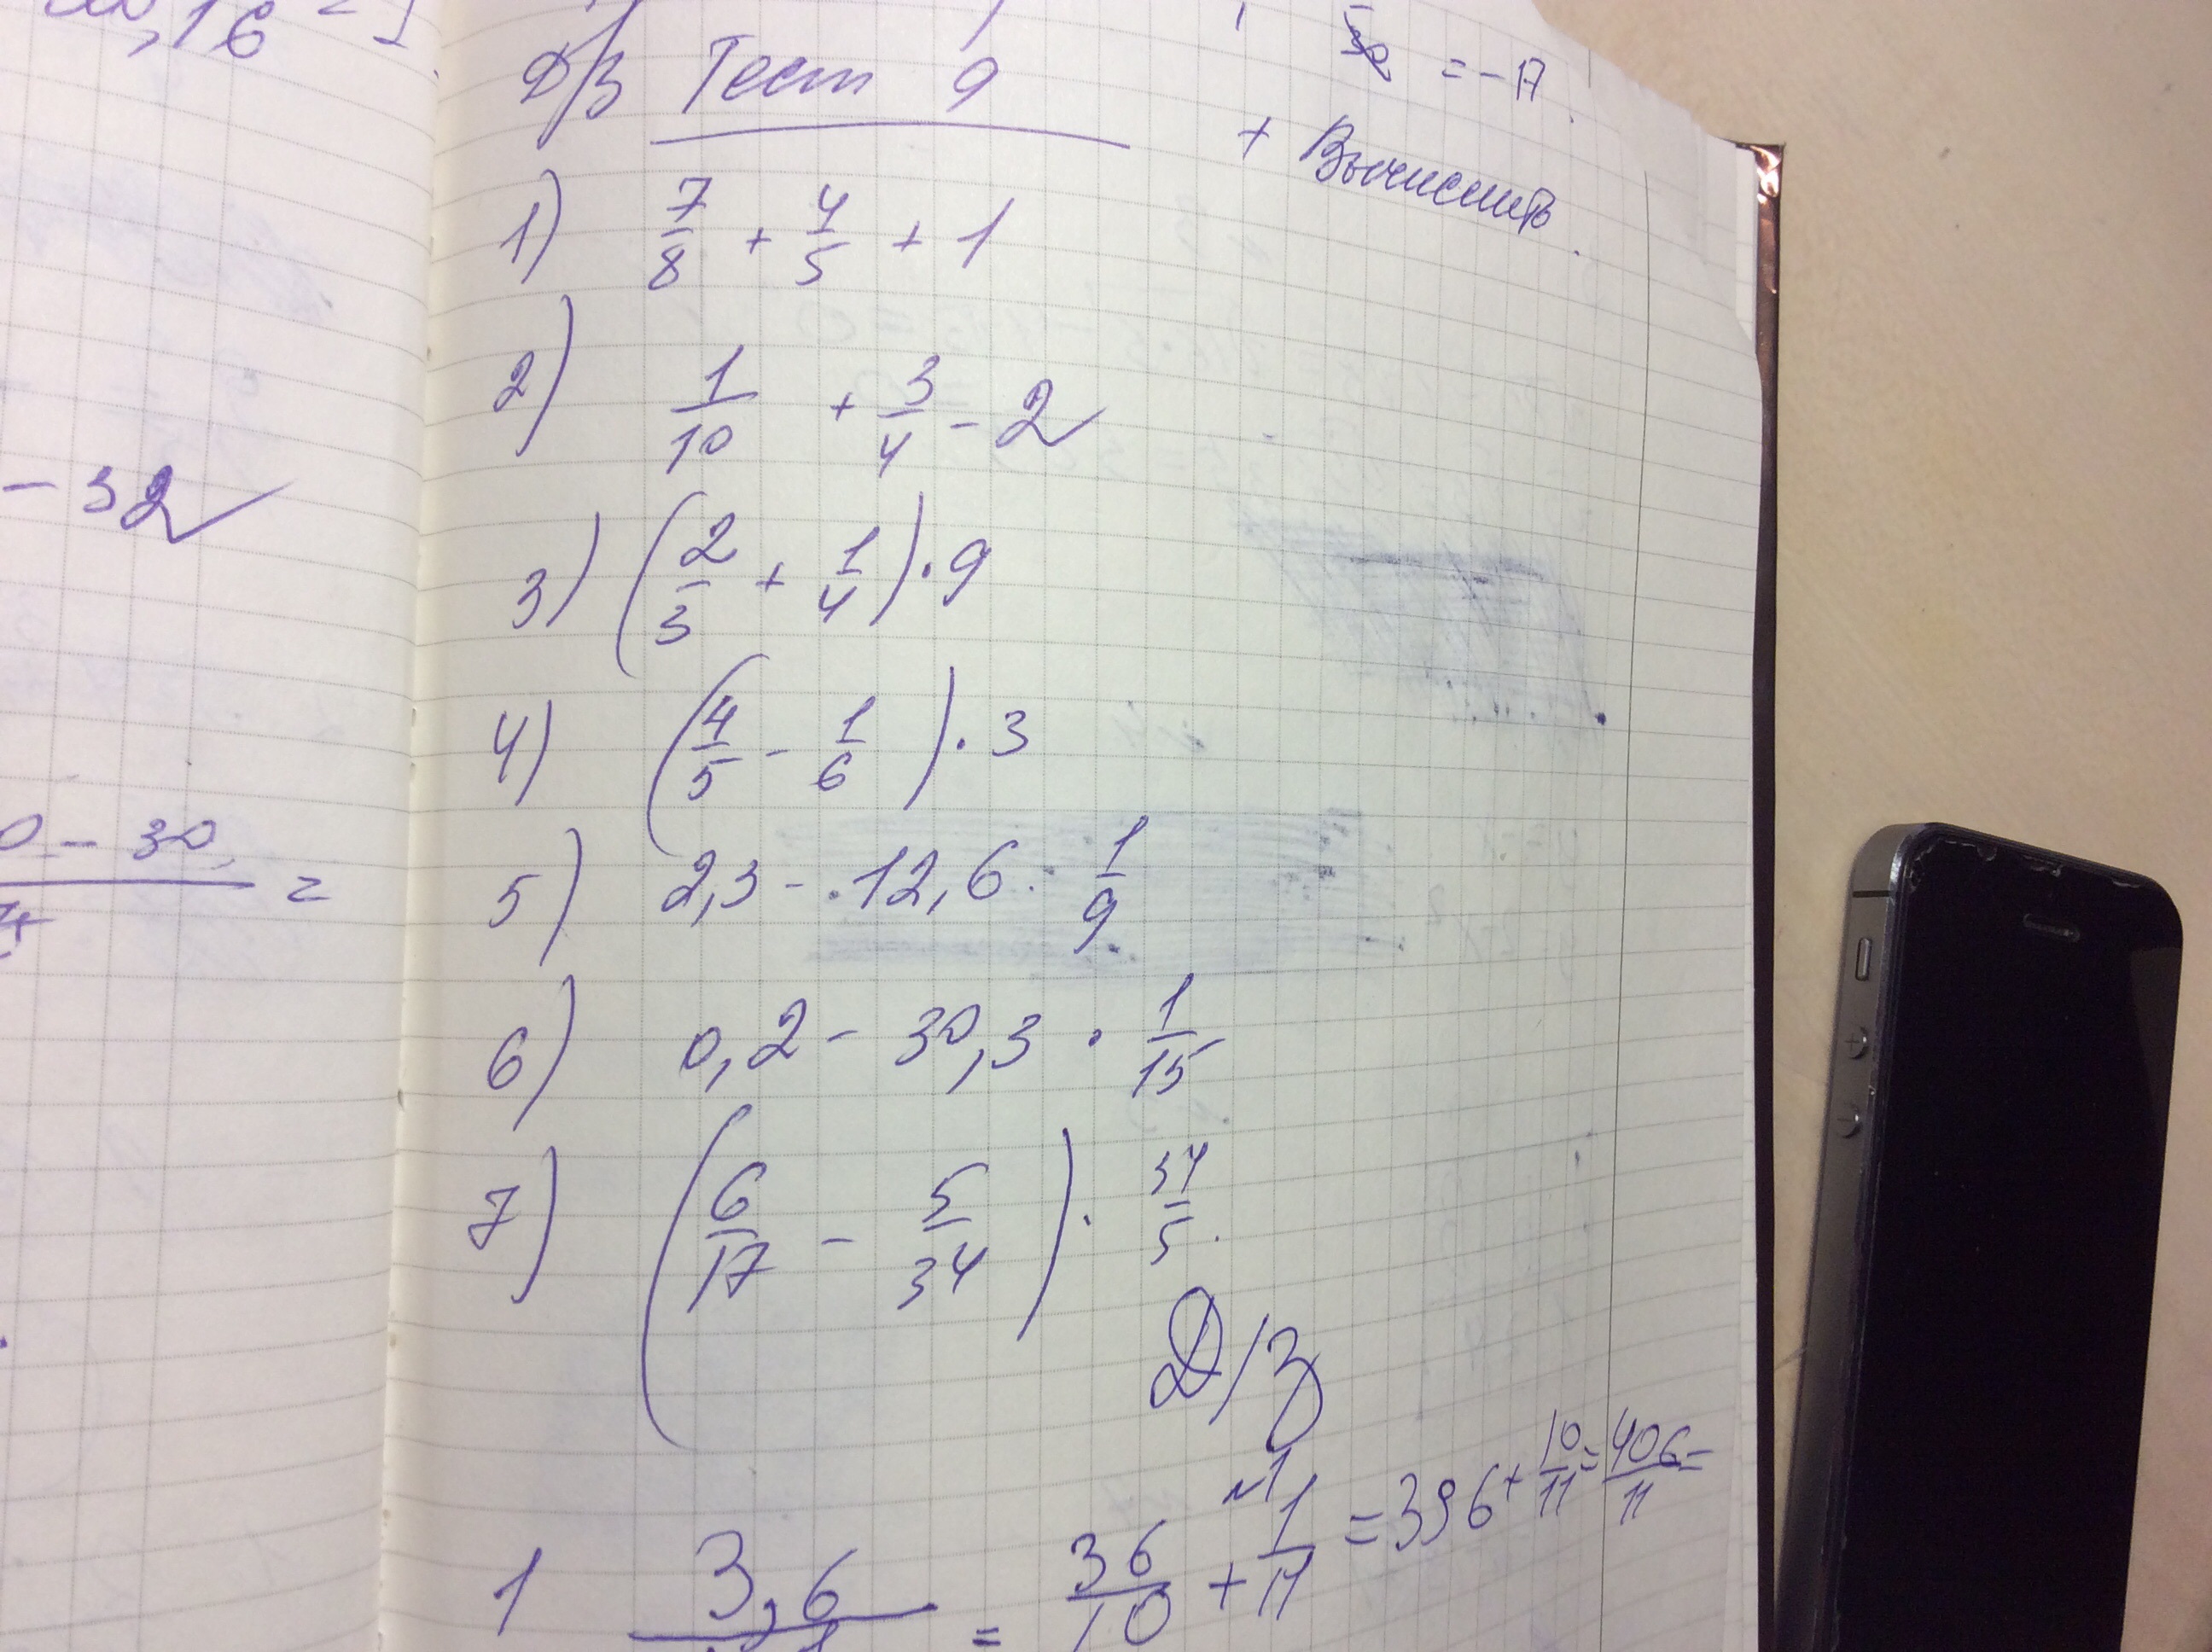 ,16 = 1
- 32
0 - 30
=
= -17
Д/З Тест 9
+ Вычислить.
1) 7/8 + 4/5 + 1
2) 1/10 + 3/4 - 2
3) (2/3 + 1/4) · 9
4) (4/5 - 1/6) · 3
5) 2,3 - 12,6 · 1/9
6) 0,2 - 30,3 · 1/15
7) (6/17 - 5/34) · 34/5.
Д/З
№1
1 3,6 = 36/10 + 1/11 = 396 + 10/11 = 406/11 =